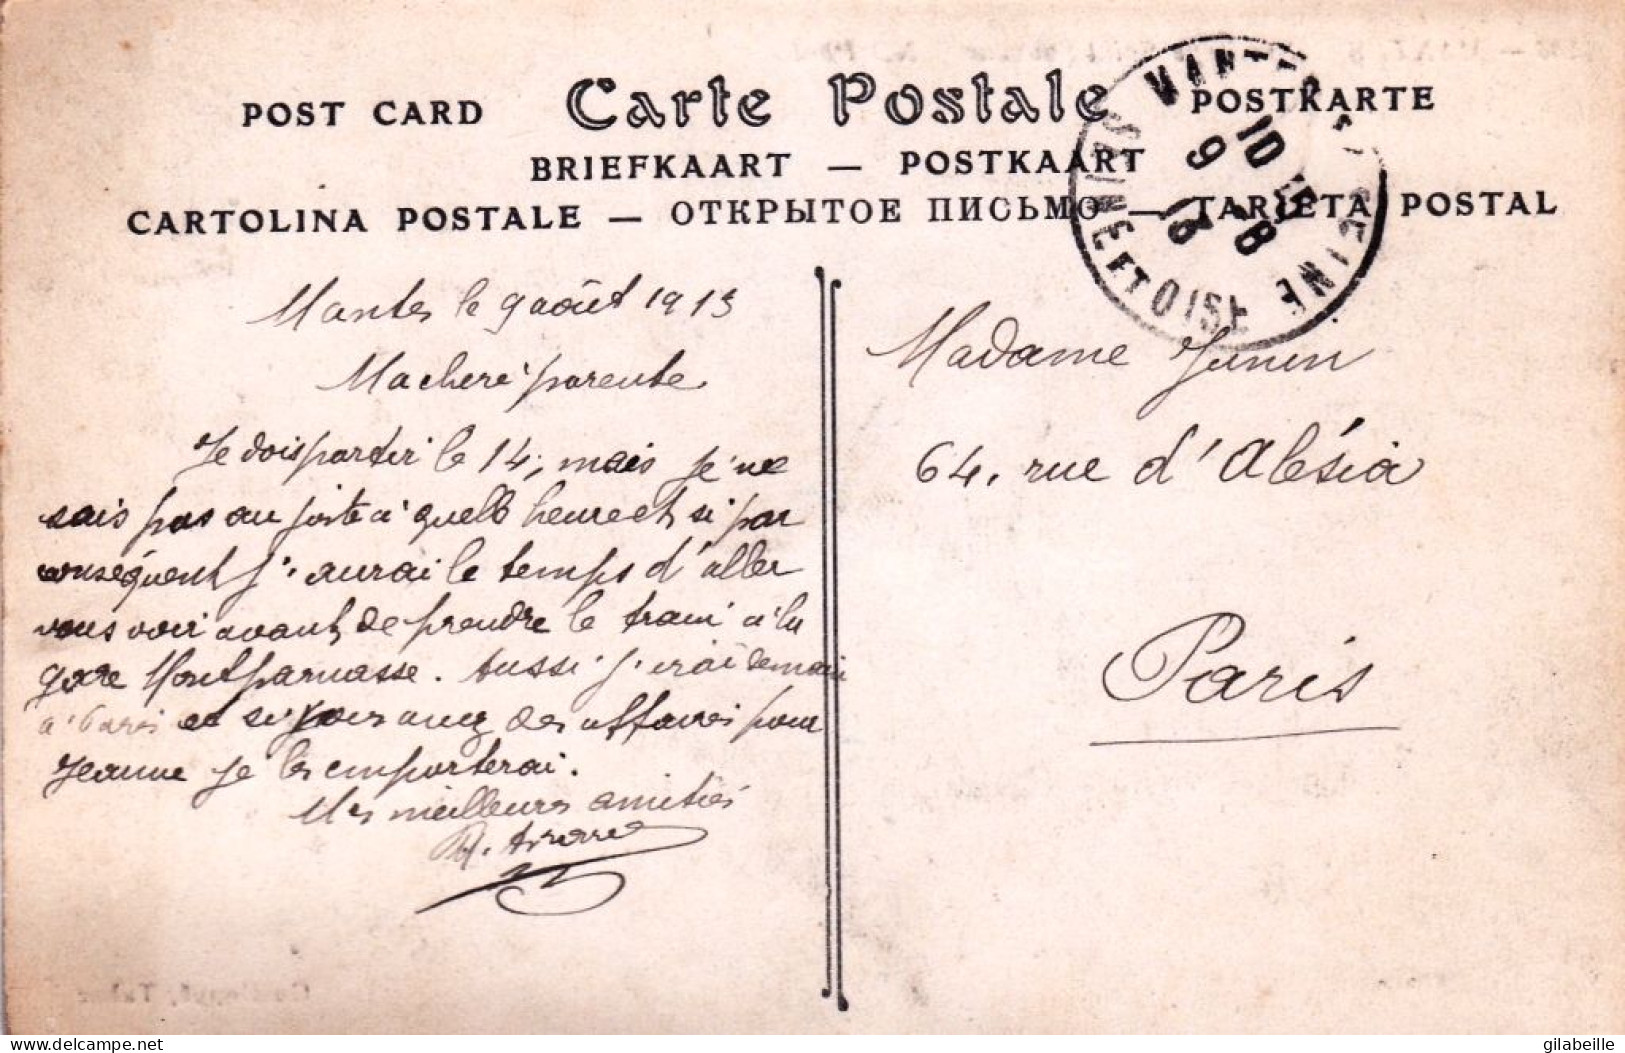 POST CARD Carte Postale POSTKARTE
BRIEFKAART — POSTKAART
CARTOLINA POSTALE — ОТКРЫТОЕ ПИСЬМО — TARJETA POSTAL
MANTES S. SEINE
SEINE ET OISE
10
9 - 8
13
Mantes le 9 août 1913
Ma chère parente
Je dois partir le 14, mais je ne
sais pas au juste à quelle heure et si par
conséquent j'aurai le temps d'aller
vous voir avant de prendre le train à la
gare Montparnasse. Aussi j'irai demain
à Paris et si vous avez des affaires pour
Jeanne je les emporterai.
Mes meilleures amitiés
Madame Junin
64, rue d'Alésia
Paris
delcampe.net
gilabeille